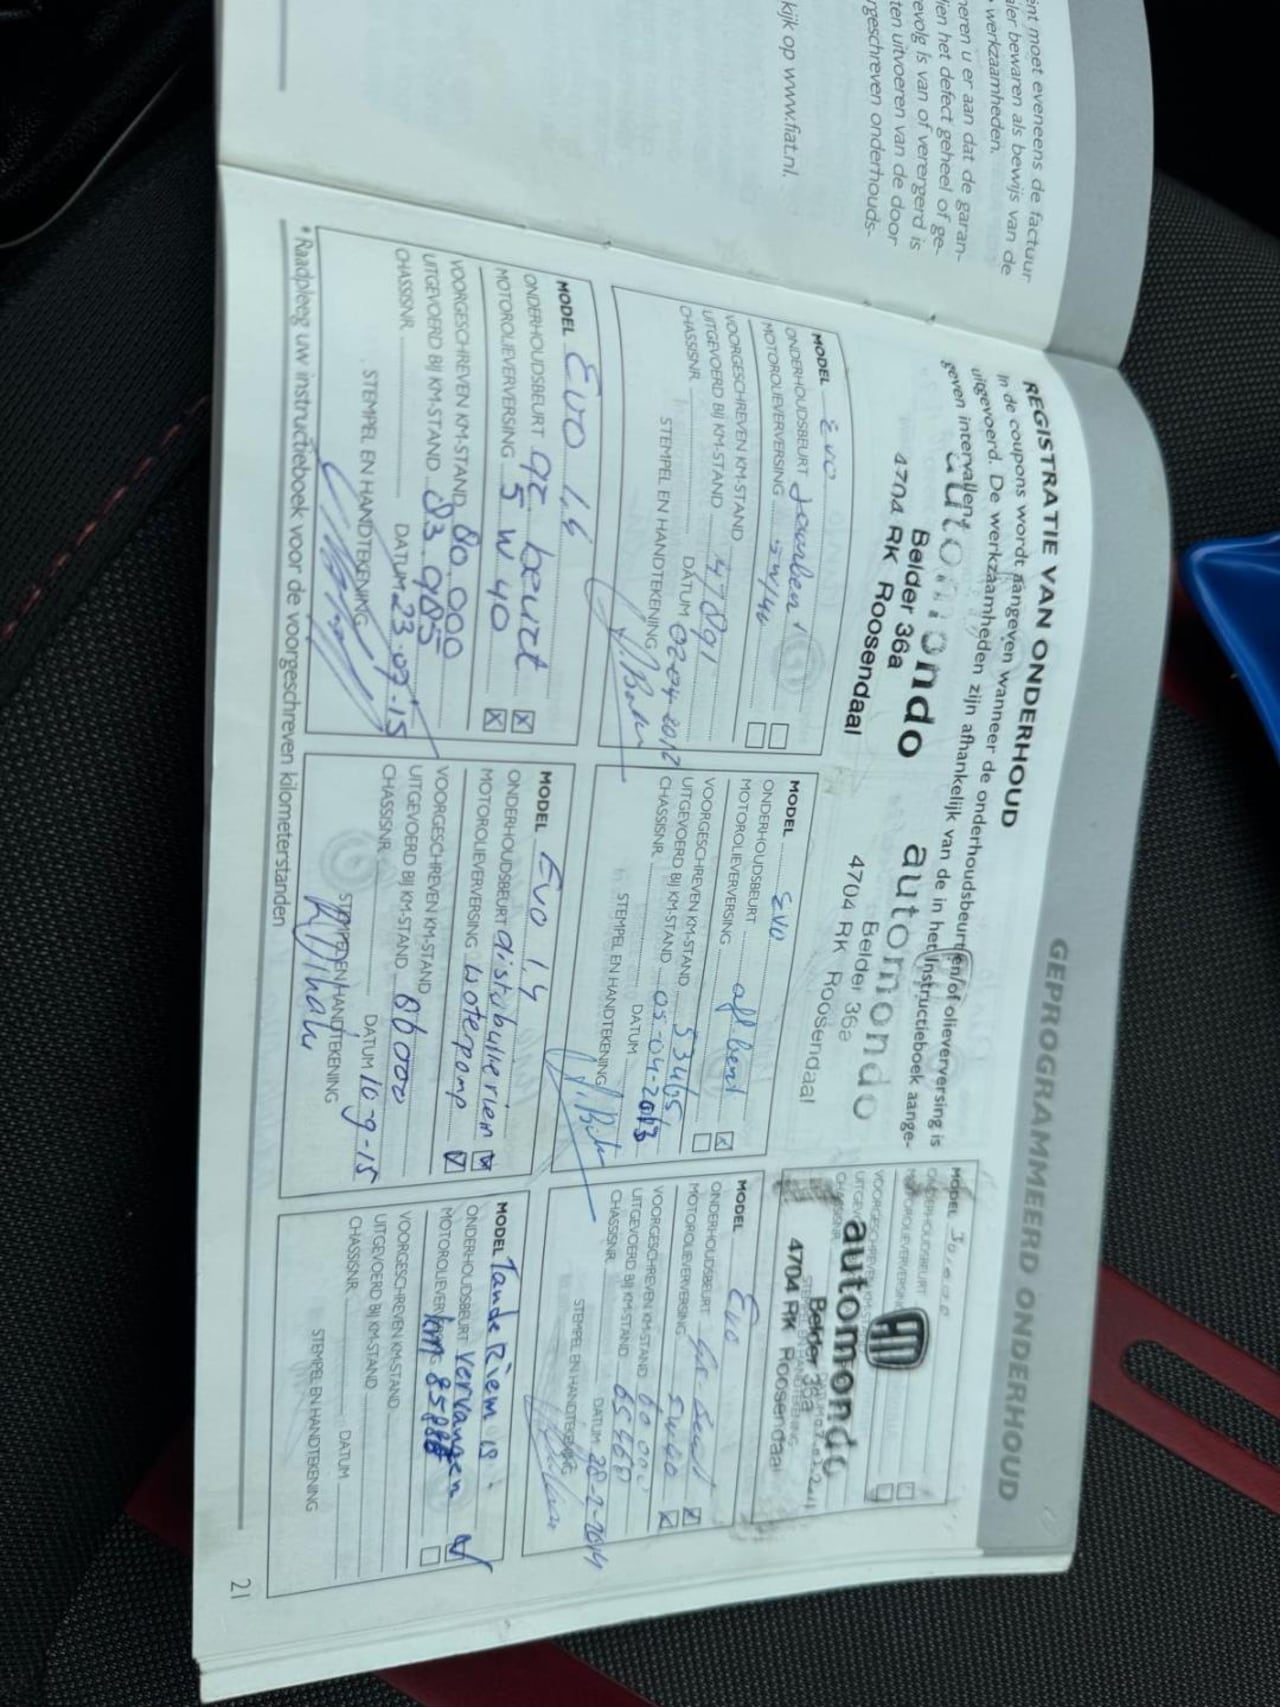 ent moet eveneens de factuur
aler bewaren als bewijs van de
werkzaamheden.
neren u er aan dat de garan-
ien het defect geheel of ge-
evolg is van of verergerd is
ten uitvoeren van de door
rgeschreven onderhouds-
kijk op www.fiat.nl.
GEPROGRAMMEERD ONDERHOUD
REGISTRATIE VAN ONDERHOUD
In de coupons wordt aangeven wanneer de onderhoudsbeurt en/of olieverversing is
uitgevoerd. De werkzaamheden zijn afhankelijk van de in het Instructieboek aange-
geven intervallen.
automondo
Belder 36a
4704 RK Roosendaal
automondo
Belder 36a
4704 RK Roosendaal
MODEL
ONDERHOUDSBEURT
MOTOROLIEVERVERSING
VOORGESCHREVEN KM-STAND
CHASSISNR.
automondo
Belder 36a
4704 RK Roosendaal
MODEL Evo
ONDERHOUDSBEURT
MOTOROLIEVERVERSING 5W/40
VOORGESCHREVEN KM-STAND
UITGEVOERD BIJ KM-STAND 47891
CHASSISNR. DATUM 02-04-2012
STEMPEL EN HANDTEKENING
MODEL Evo
ONDERHOUDSBEURT
MOTOROLIEVERVERSING afl. beurt
VOORGESCHREVEN KM-STAND
UITGEVOERD BIJ KM-STAND 53465
CHASSISNR. DATUM 05-04-2013
STEMPEL EN HANDTEKENING
MODEL Evo
ONDERHOUDSBEURT Gr. beurt
MOTOROLIEVERVERSING 5W40
VOORGESCHREVEN KM-STAND 60000
UITGEVOERD BIJ KM-STAND 65468
CHASSISNR. DATUM 28-2-2014
STEMPEL EN HANDTEKENING
MODEL Evo 1,4
ONDERHOUDSBEURT gr beurt
MOTOROLIEVERVERSING 5 W 40
VOORGESCHREVEN KM-STAND 80.000
UITGEVOERD BIJ KM-STAND 83.985
CHASSISNR. DATUM 23-07-15
STEMPEL EN HANDTEKENING
MODEL Evo 1,4
ONDERHOUDSBEURT distributieriem
MOTOROLIEVERVERSING Waterpomp
VOORGESCHREVEN KM-STAND
UITGEVOERD BIJ KM-STAND 86000
CHASSISNR. DATUM 10-9-15
STEMPEL EN HANDTEKENING
MODEL Tande Riem is
ONDERHOUDSBEURT vervangen
MOTOROLIEVERVERSING km
VOORGESCHREVEN KM-STAND
UITGEVOERD BIJ KM-STAND
CHASSISNR. DATUM
STEMPEL EN HANDTEKENING
* Raadpleeg uw instructieboek voor de voorgeschreven kilometerstanden
21